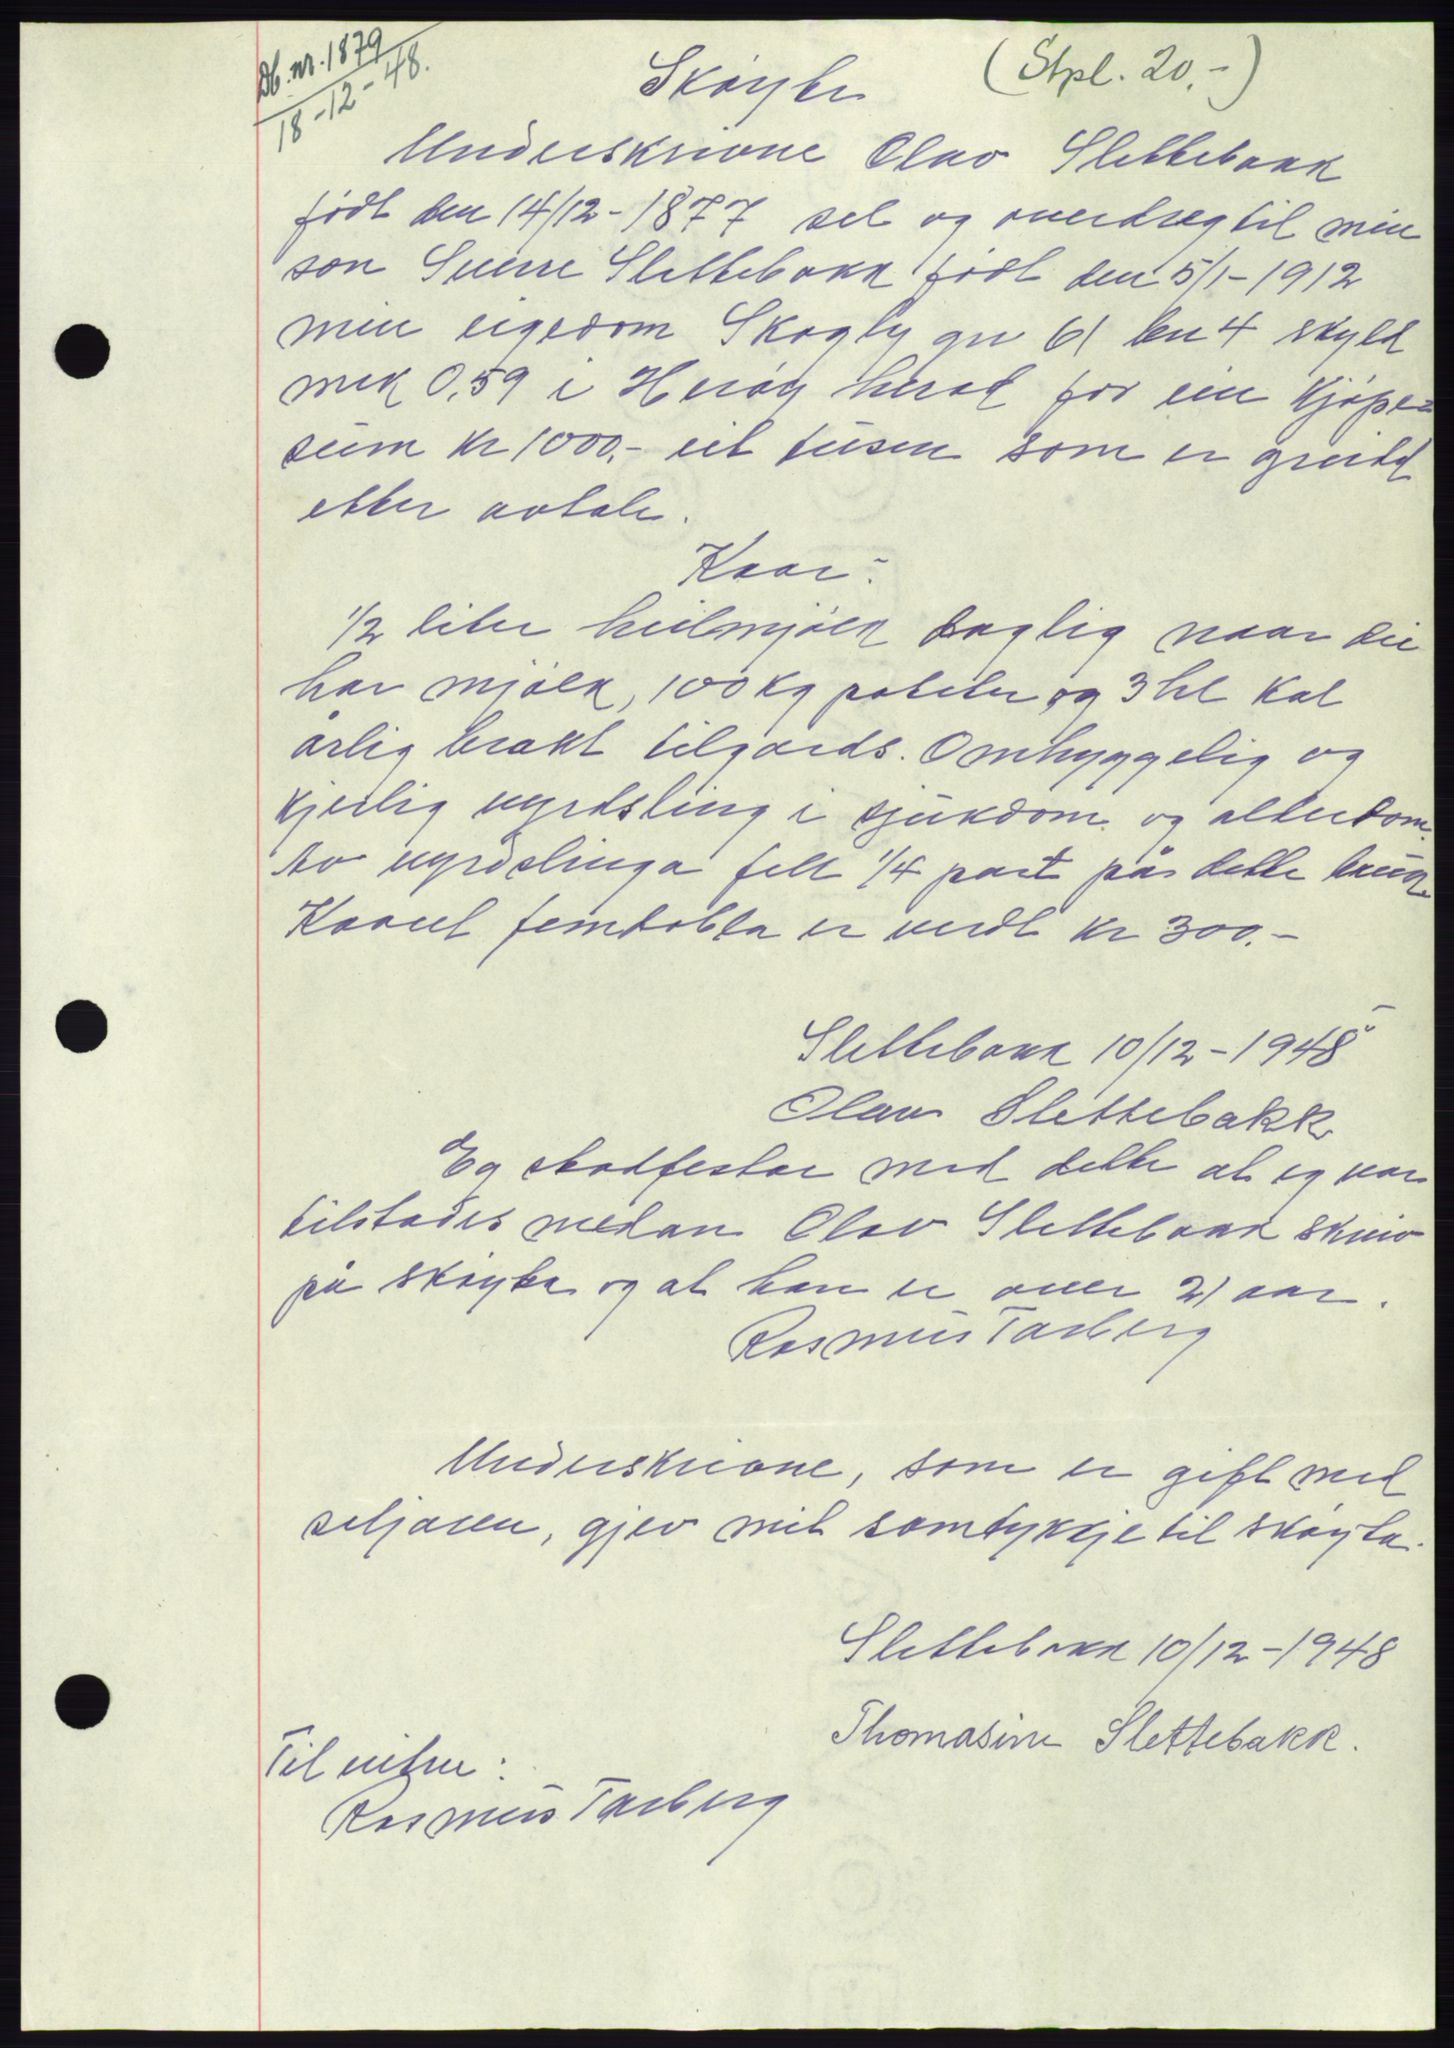 Db. nr. 1879
18-12-48.
(Stpl. 20.-)
Skøyte
Underskrivne Olav Slettebakk
født den 14/12-1877 sel og overdreg til min
son Sverre Slettebakk født den 5/1-1912
min eigedom Skogly gn 61 bn 4 skyld
mrk 0,59 i Herøy herad for ein kjøpe=
sum kr 1000.- eit tusen som er greidd
etter avtale.
Kaar:
1/2 liter heilmjølk dagleg naar dei
har mjølk, 100 kg poteter og 3 hl kol
årlig brakt tilgards. Omhyggelig og
kjerlig vyrdsling i sjukdom og alderdom.
Av vyrdslinga fell 1/4 part på dette bruk.
Kaaret femdobla er verdt kr 300.-
Slettebakk 10/12-1948
Olav Slettebakk
Eg stadfestar med dette at eg var
tilstades medan Olav Slettebakk skreiv
på skøyta og at han er over 21 aar.
Rasmus Tarberg
Underskrivne, som er gift med
seljaren, gjev mit samtykkje til skøyta.
Slettebakk 10/12-1948
Thomasine Slettebakk.
Til vitne:
Rasmus Tarberg